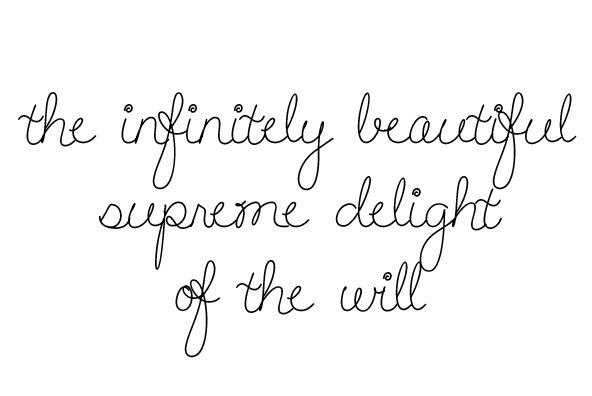 the infinitely beautiful
supreme delight
of the will